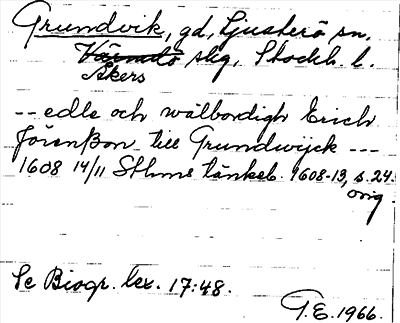 Grundvik, gd, Ljusterö sn,
Värmdö slg, Stockh. l.
Åkers
-- edle och wälbordigh Erich
Jörenßon till Grundwijck ---
1608 14/11 Sthms tänkeb. 1608-13, s. 24.
orig.
Se Biogr. lex. 17:48.
G.E. 1966.